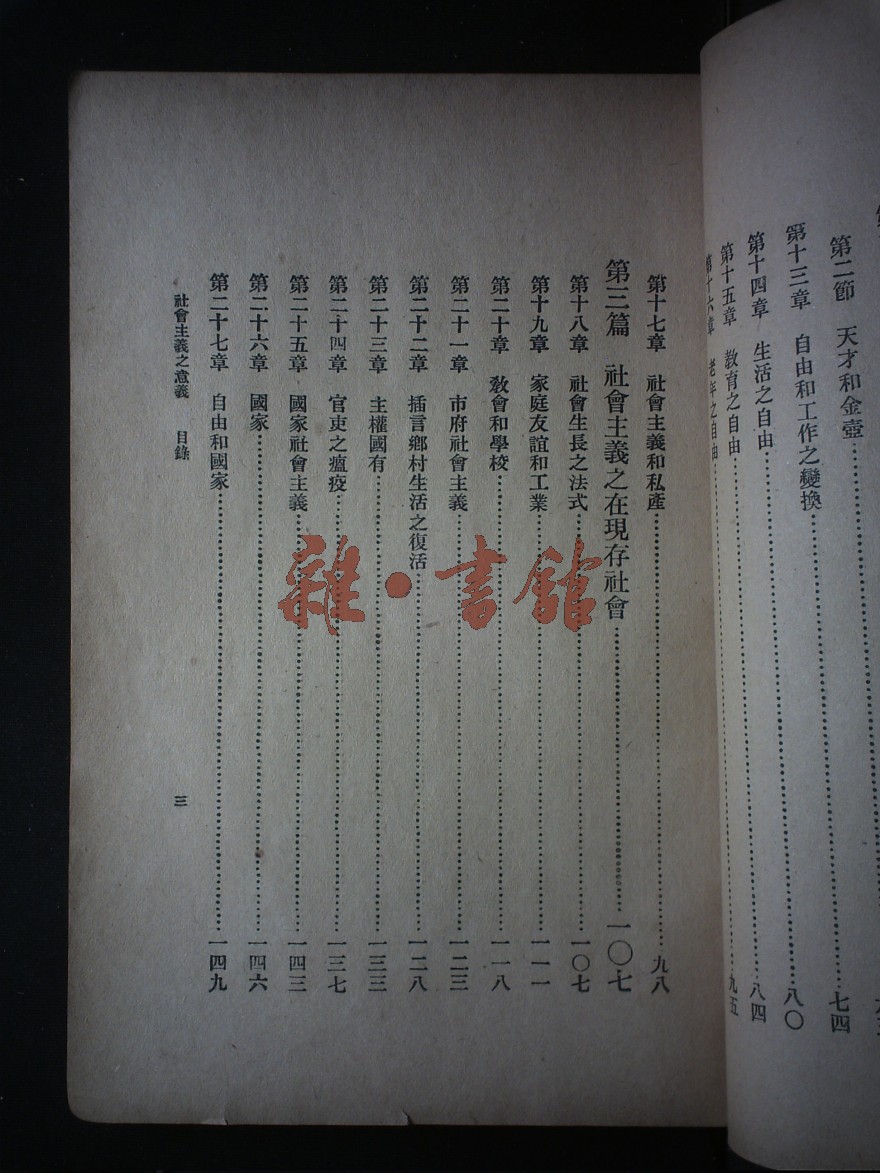 第二節　天才和金壺⋯⋯七四
第十三章　自由和工作之變換⋯⋯八〇
第十四章　生活之自由⋯⋯八四
第十五章　教育之自由⋯⋯九五
第十六章　老年之自由⋯⋯
第十七章　社會主義和私產⋯⋯九八
第三篇　社會主義之在現存社會⋯⋯一〇七
第十八章　社會生長之法式⋯⋯一〇七
第十九章　家庭友誼和工業⋯⋯一一一
第二十章　敎會和學校⋯⋯一一八
第二十一章　市府社會主義⋯⋯一二三
第二十二章　插言鄉村生活之復活⋯⋯一二八
第二十三章　主權國有⋯⋯一三三
第二十四章　官吏之瘟疫⋯⋯一三七
第二十五章　國家社會主義⋯⋯一四三
第二十六章　國家⋯⋯一四六
第二十七章　自由和國家⋯⋯一四九
社會主義之意義　目錄　三
雜·書館